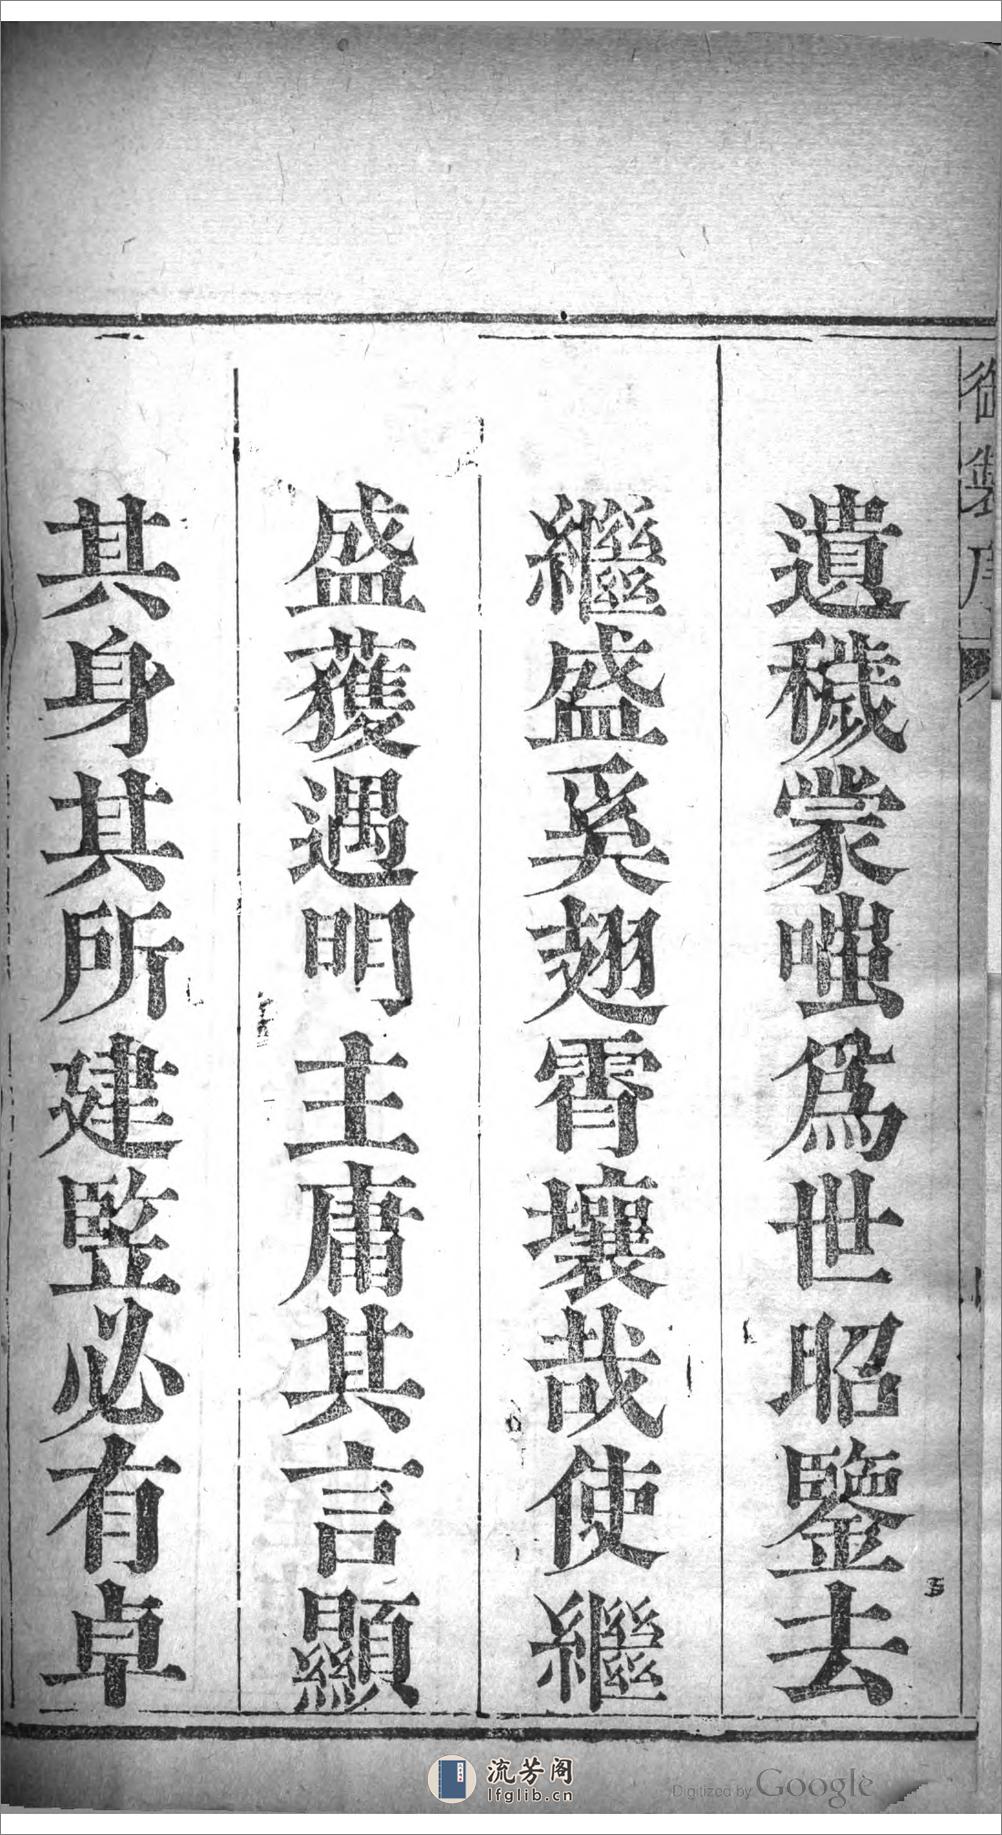 御製序
遺穢蒙嗤爲世昭鑒去
繼盛奚翅霄壤哉使繼
盛獲遇明主庸其言顯
其身其所建竪必有卓
流芳阁
lfglib.cn
Digitized by Google